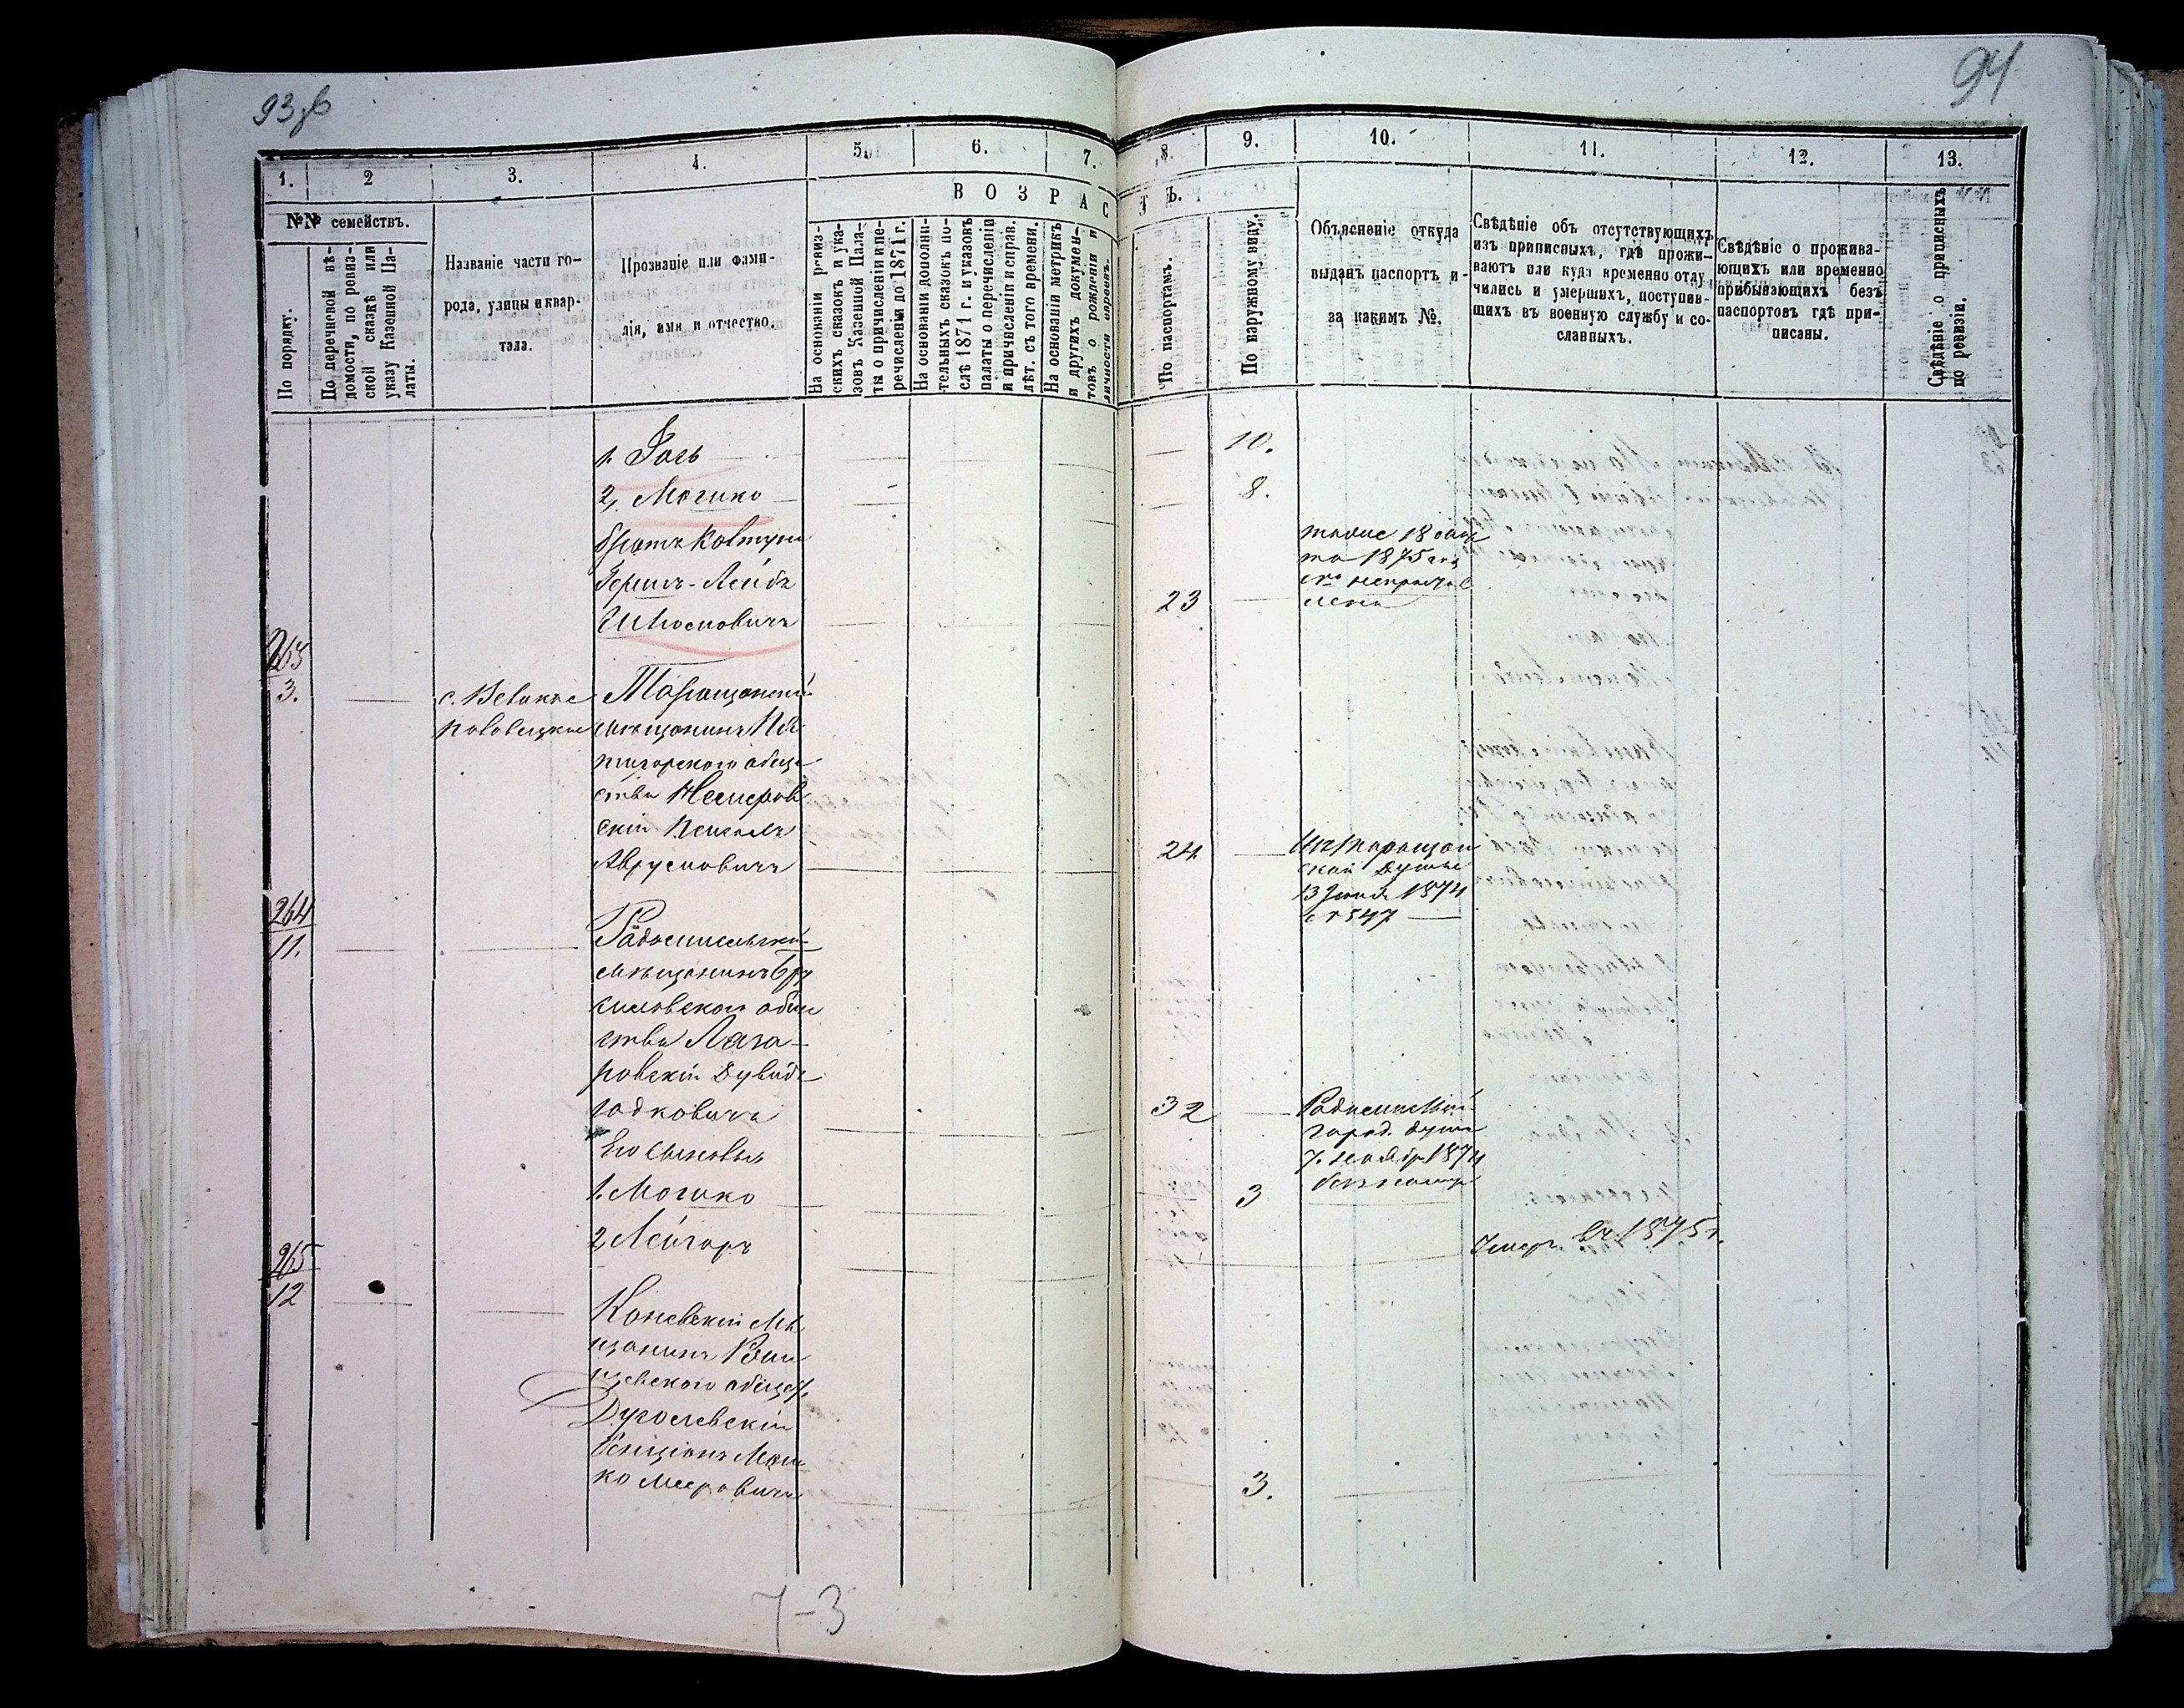 93 зв
94
1.
2
3.
4.
5.
6.
7.
8.
9.
10.
11.
12.
13.
№№ семействъ.
По порядку.
По перечневой вѣ-
домости, по ревиз-
ской сказкѣ или
указу Казенной Па-
латы.
Названіе части го-
рода, улицы и квар-
тала.
Прозваніе или фами-
лія, имя и отчество.
ВОЗРАСТЪ.
На основаніи ревиз-
скихъ сказокъ и ука-
зовъ Казенной Пала-
ты о причисленіи и пе-
речисленіи до 1871 г.
На основаніи дополни-
тельныхъ сказокъ по-
слѣ 1871 г. и указовъ
палаты о перечисленіи
и причисленіи и справ.
лѣт. съ того времени.
На основаніи метрикъ
и другихъ докумен-
товъ о рожденіи и
личности евреевъ.
По паспортамъ.
По наружному виду.
Объясненіе откуда
выданъ паспортъ и
за какимъ №.
Свѣдѣніе объ отсутствующихъ
изъ приписныхъ, гдѣ прожи-
ваютъ или куда временно отлу
чились и умершихъ, поступив-
шихъ въ военную службу и со-
сланныхъ.
Свѣдѣніе о прожива-
ющихъ или временно
прибывающихъ безъ
паспортовъ гдѣ при-
писаны.
Свѣдѣніе о приписныхъ
по ревизіи.
1. 10.
2, Мошко 8.
братъ Ковтуна
Гершъ-Лейба
Шлiомовичъ 23
1875
263
3.
с. Великіе
Половецкіе
Таращанскій
мѣщанинъ Пя
тигорскаго обще
ства Немиров
скій
Аврумовичъ 24
Изъ Таращан
ской Думы
13 1874
№ 547
264
11.
Радомысльскій
мѣщанинъ Бру
силовскаго общ
ства Лаза-
ровскій Дувидъ
32
Радомысльскій
город. дума
7 1874
безъ номер
Его сыновья
1. Мошко 3
2, Лейзоръ Умеръ въ 1875 г.
265
12
Каневскій мѣ
щанинъ Ржи
щевскаго общест.
Бенціонъ Мош
ко Меровичъ 3.
7-3